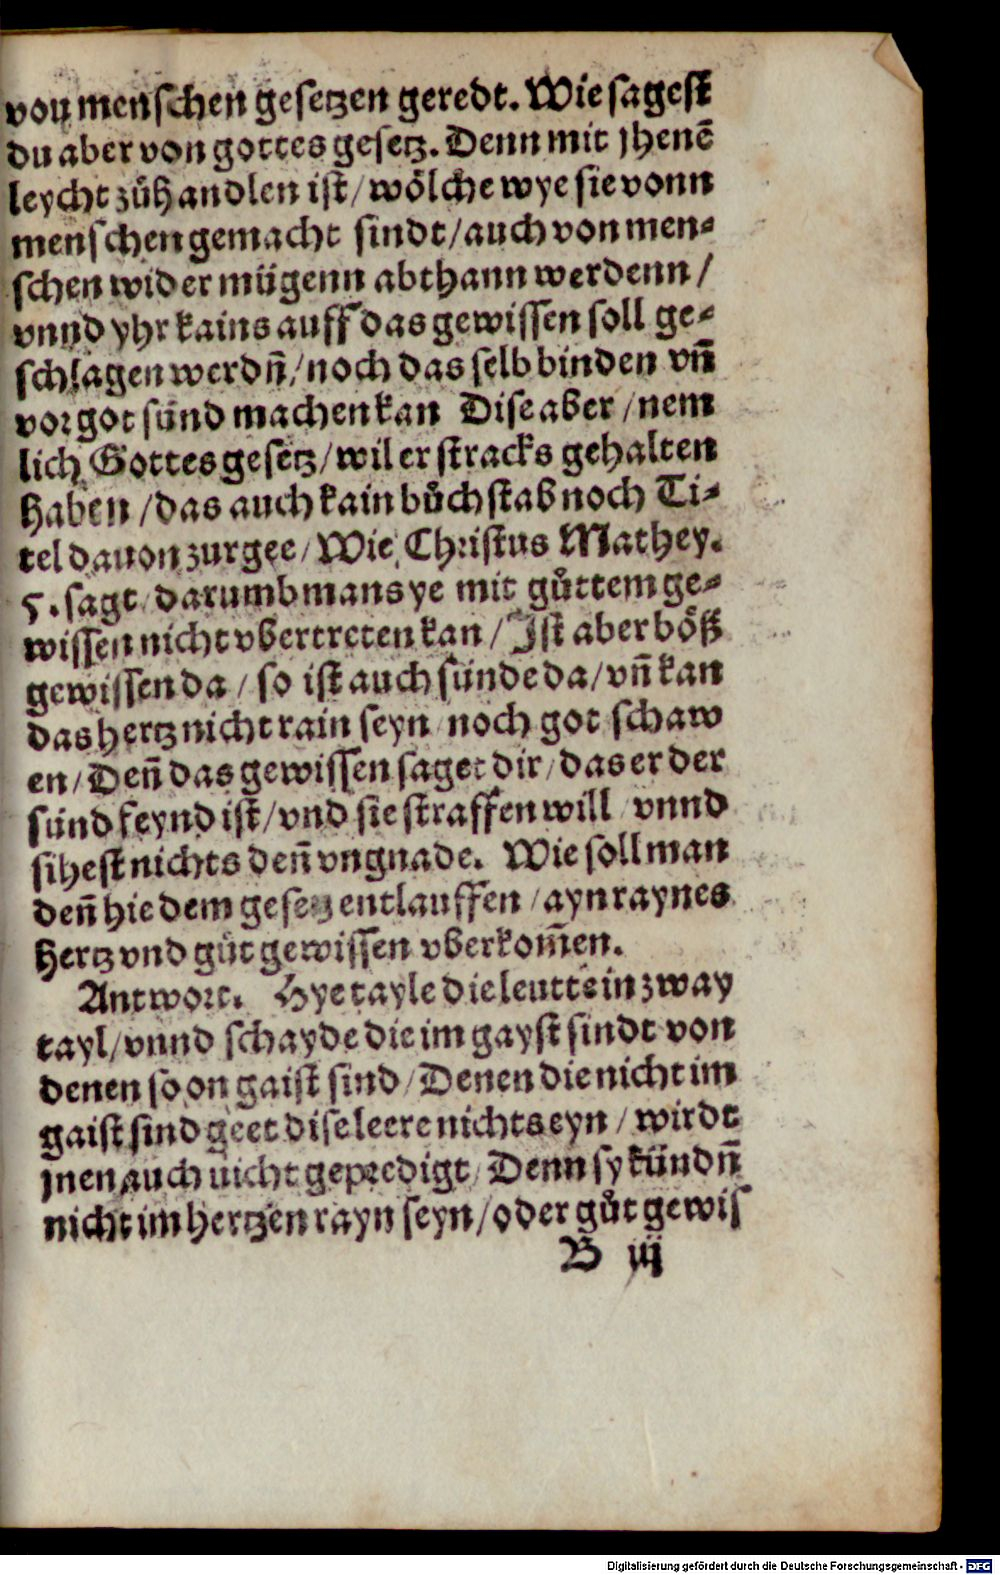 von menschen gesetzen geredt. Wie sagest
du aber von gottes gesetz. Denn mit jhenē
leycht zůhandlen ist / wölche wye sie vonn
menschen gemacht sindt / auch von men⸗
schen wider mügenn abthann werdenn /
vnnd yhr kains auff das gewissen soll ge⸗
schlagen werdn̄ / noch das selb binden vn̄
vor got sünd machen kan Dise aber / nem
lich Gottes gesetz / wil er stracks gehalten
haben / das auch kain bůchstab noch Ti⸗
tel dauon zurgee / Wie Christus Mathey.
5. sagt / darumb mans ye mit gůttem ge⸗
wissen nicht vbertreten kan / Jst aber böß
gewissen da / so ist auch sünde da / vn̄ kan
das hertz nicht rain seyn / noch got schaw
en / Den̄ das gewissen saget dir / das er der
sünd feynd ist / vnd sie straffen will / vnnd
sihest nichts den̄ vngnade. Wie soll man
den̄ hie dem gesetz entlauffen / ayn raynes
hertz vnd gůt gewissen vberkom̄en.
Antwort. Hye tayle die leutte in zway
tayl / vnnd schayde die im gayst sindt von
denen so on gaist sind / Denen die nicht im
gaist sind geet dise leere nichts eyn / wirdt
jnen auch nicht gepredigt / Denn sy kündn̄
nicht im hertzen rayn seyn / oder gůt gewis
B iij
Digitalisierung gefördert durch die Deutsche Forschungsgemeinschaft - DFG